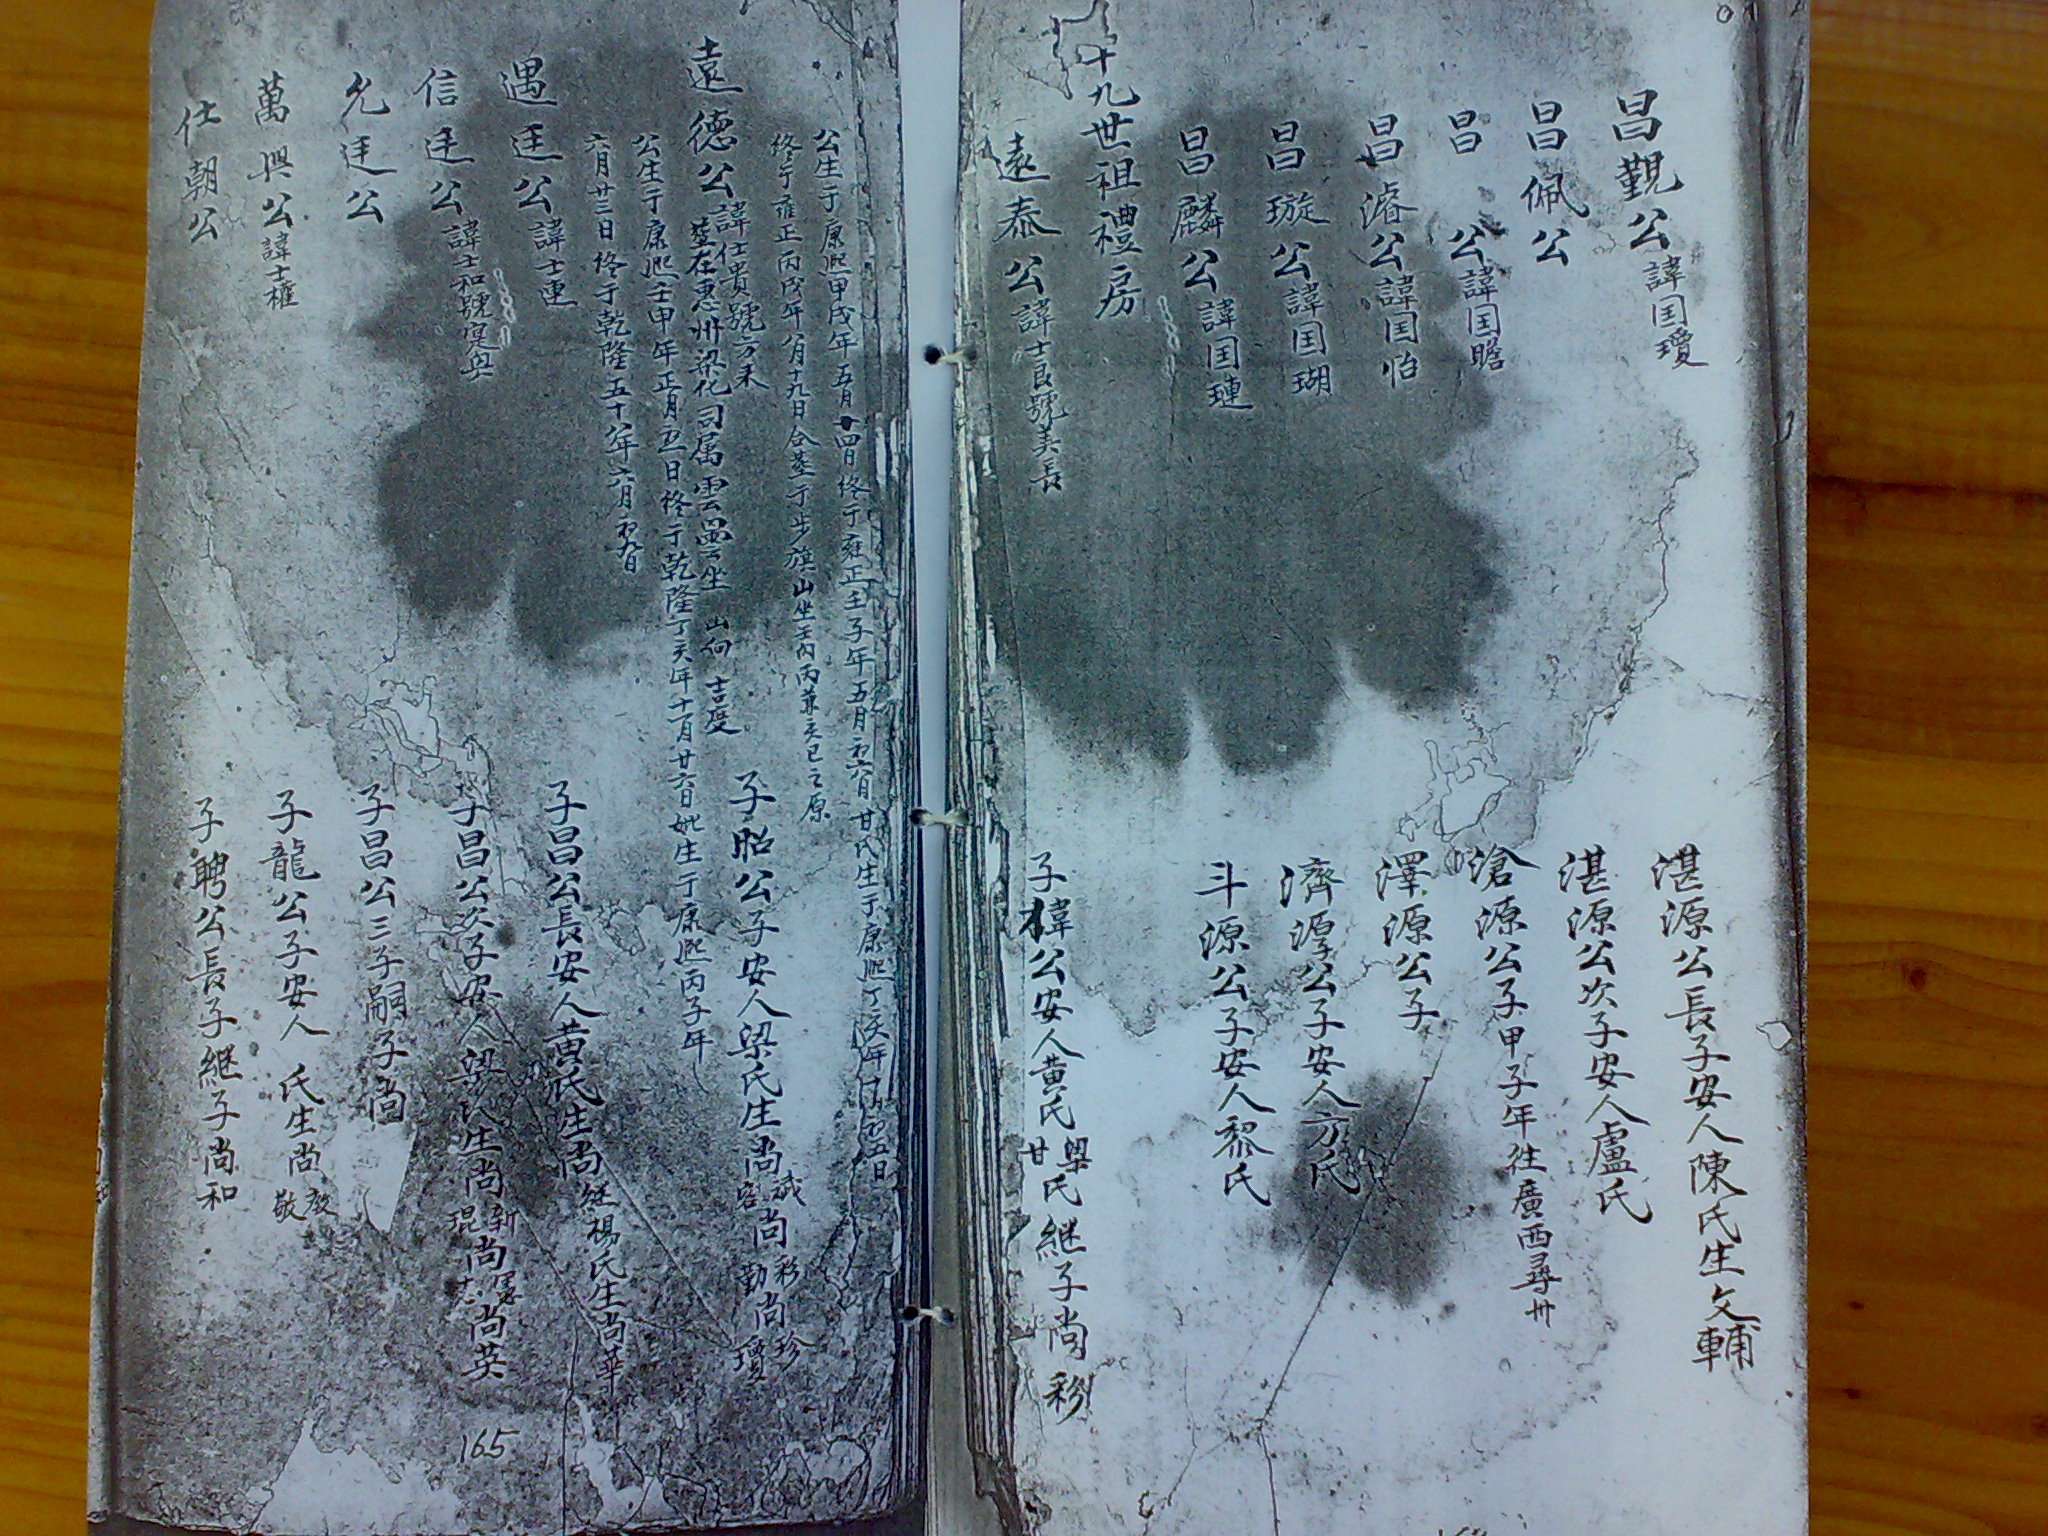 昌觐公諱国瓊 湛源公長子安人陳氏生文輔
昌佩公 湛源公次子安人盧氏
昌 公諱国瞻 滄源公子甲子年往廣西尋州
昌濬公諱国怡 澤源公子
昌璇公諱国瑚 濟源公子安人方氏
昌麟公諱国璉 斗源公子安人黎氏
十九世祖禮房
遠泰公諱士良號美長 子樟公安人黄氏梁甘氏継子尚彩
公生于康熙甲戌年五月廿四日終于雍正壬子年五月初六日甘氏生于康熙丁亥年 月初五日
終于雍正丙戌年八月十九日合塟于步旗山坐壬向丙兼亥巳之原
遠德公諱仕貴號方禾 子昭公子安人梁氏生尚誠容尚彩勤尚珍瓊
塟在惠州梁化司属雲 坐 山向 吉度
公生于康熙壬申年正月 日終于乾隆丁亥年十一月廿六日妣生于康熙丙子年
六月廿三日終于乾隆五十 年六月初九日
遇廷公諱士連 子昌公長安人黄氏生尚 継楊氏生尚華
信廷公諱士和號 子昌公次子安人梁氏生尚新琨尚 志尚英
允廷公 子昌公三子嗣子尚
萬興公諱士權 子龍公子安人 氏生尚 敬
仕朝公 子聘公長子継子尚和
165